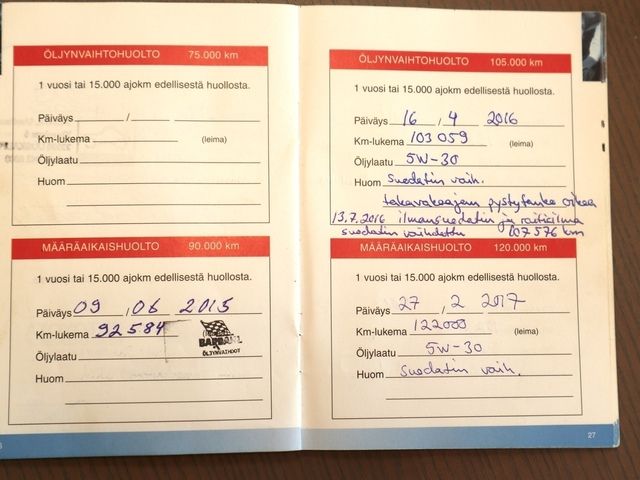 ÖLJYNVAIHTOHUOLTO 75.000 km
1 vuosi tai 15.000 ajokm edellisestä huollosta.
Päiväys / 
Km-lukema (leima)
Öljylaatu
Huom
MÄÄRÄAIKAISHUOLTO 90.000 km
1 vuosi tai 15.000 ajokm edellisestä huollosta.
Päiväys 09 / 06 2015
Km-lukema 92584
BARBAN!
ÖLJYNVAIHDOT
Öljylaatu
Huom
ÖLJYNVAIHTOHUOLTO 105.000 km
1 vuosi tai 15.000 ajokm edellisestä huollosta.
Päiväys 16 / 4 2016
Km-lukema 103 059 (leima)
Öljylaatu 5W-30
Huom Suodatin vaih.
takavakaajan pystytanko oikea
13.7.2016 ilmansuodatin ja raitisilma
suodatin vaihdettu 107 576 km
MÄÄRÄAIKAISHUOLTO 120.000 km
1 vuosi tai 15.000 ajokm edellisestä huollosta.
Päiväys 27 / 2 2017
Km-lukema 122000 (leima)
Öljylaatu 5W-30
Huom Suodatin vaih.
27